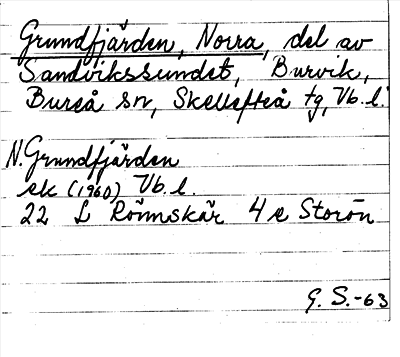 Grundfjärden, Norra, del av
Sandvikssundet, Burvik,
Bureå sn, Skellefteå tg, Vb. l.
N. Grundfjärden
ek (1960) Vb. l.
22 L Rönnskär 4 e Storön
G. S. -63